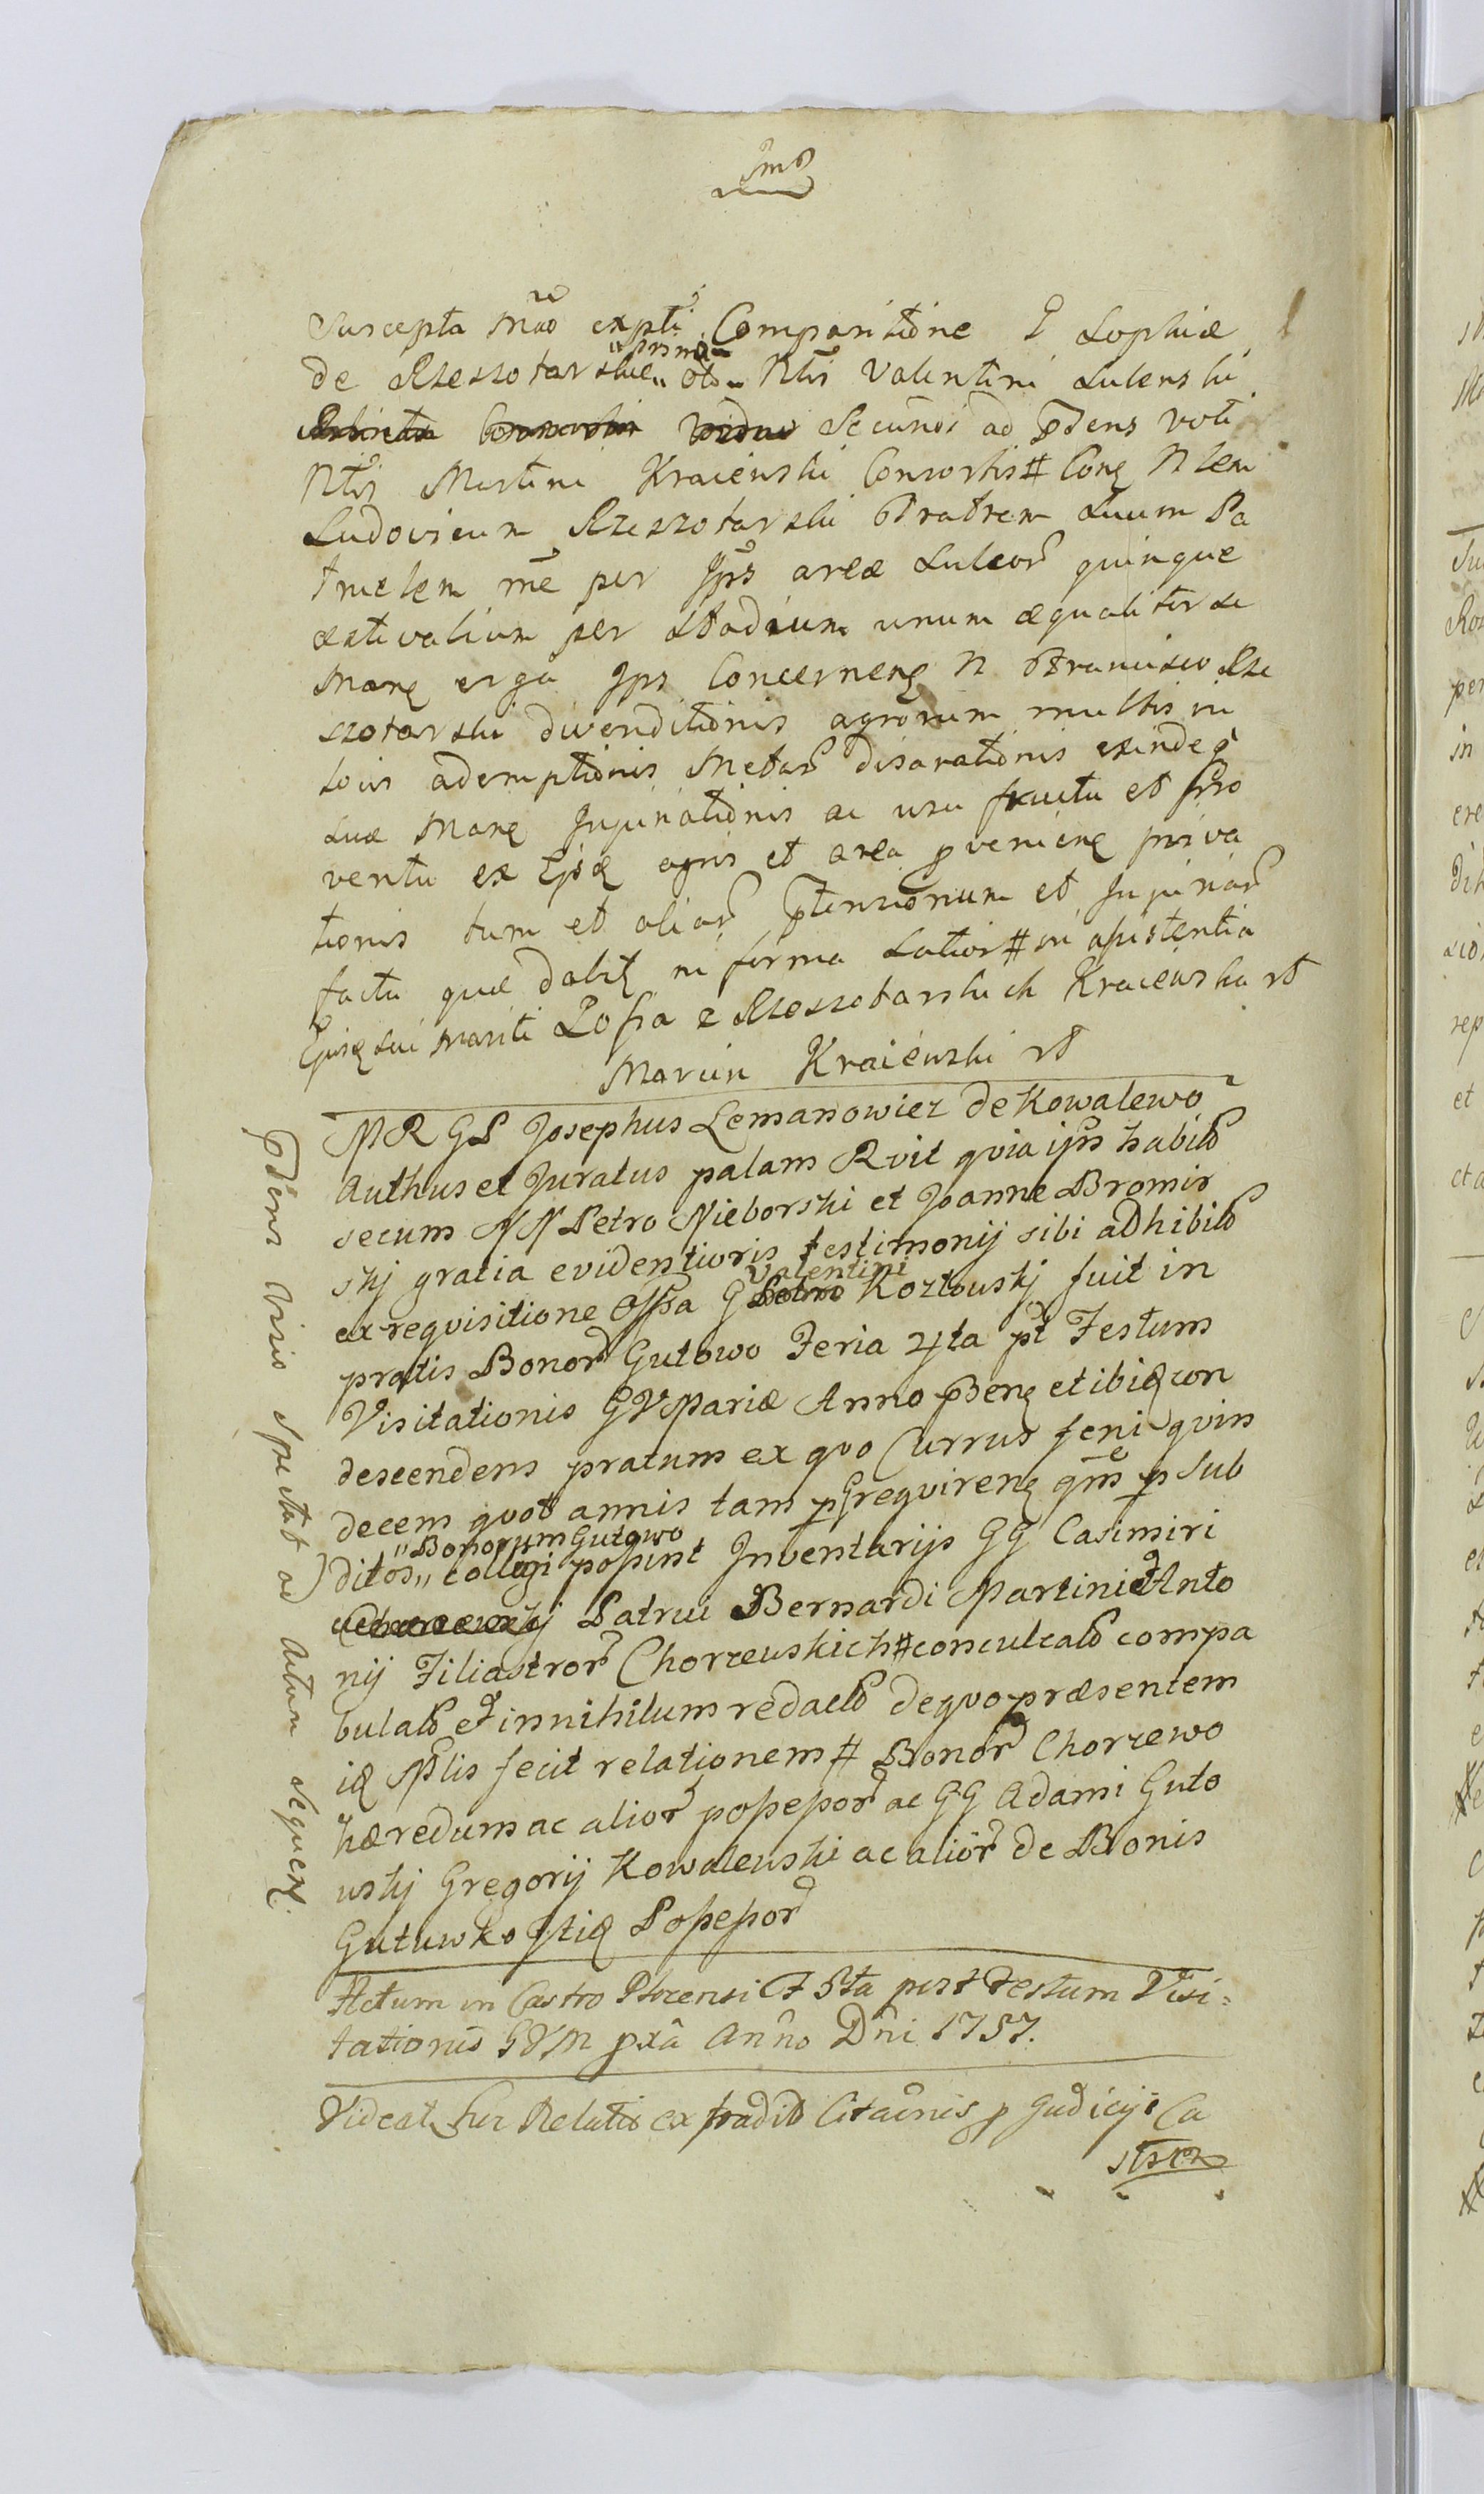 Suscepta Mao expti Comparitione G Sophiæ
de Rzeszotarskie „primo„ oto Nlis Valentini Sulenski
Secundi ad pdens voti
Nlis Martini Kraiewski Consortis # Conq Nlem
Ludovicum Rzeszotarski Fratrem Suum Pa
truelem me per Jps areæ Sulcor quinque
æstivalium per Stadium unum æqualiter se
Manq erga Jps Concernenq N Francisco Rze
szotarski divenditionis agrorum multis in
locis ademptionis Metar disarationis exindeq
suæ Manq Injuriationis ac usu fructu et pro
ventu ex Ejsq agris et area pvenienq priva
tionis tum et alior ptensionum et Injuriar
facta quæ dabit in forma Latior # in assistentia
Ejusq sui Mariti Zofia z Rzeszotarskich Kraiewska rt
Marcin Kraiewski rt
MR GS Josephus Lemanowicz de Kowalewo
Authus et Juratus palam Rvit qvia ips habito
secum NN Petro Nieborski et Joanne Bromir
skj gratia evidentioris testimonij sibi adhibito
ex reqvisitione Offa G Petro Valentini Kozłowskj fuit in
pratis Bonor Gutowo Feria 4ta pt Festum
Visitationis GVMariæ Anno pdenq et ibiq con
descendens pratum ex qvo Currus feni qvin
decem qvot annis tam p Greqvirenq qm p sub
ditos „Bonorum Gutowo„ collegi possunt Inventarijs GG Casimiri
Patrui Bernardi Martini et Anto
nij Filiastror Chorzewskich # conculcato compa
bulato et in nihilum redacto de qvo præsentem
iq Mlis fecit relationem # Bonor Chorzewo
hæredum ac alior possessor ac GG Adami Guto
wskj Gregorij Kowalewski ac alior de Bonis
Gutuwko Itiq Possessor
Pdens Visio spectat ad Actum sequenq.
Actum in Castro Plocensi F 5ta post Festum Visi=
tationis GVM pxa Anno Dni 1757.
Videat hic Relatio ex tradit Citaonis p Judicijs Ca
stren